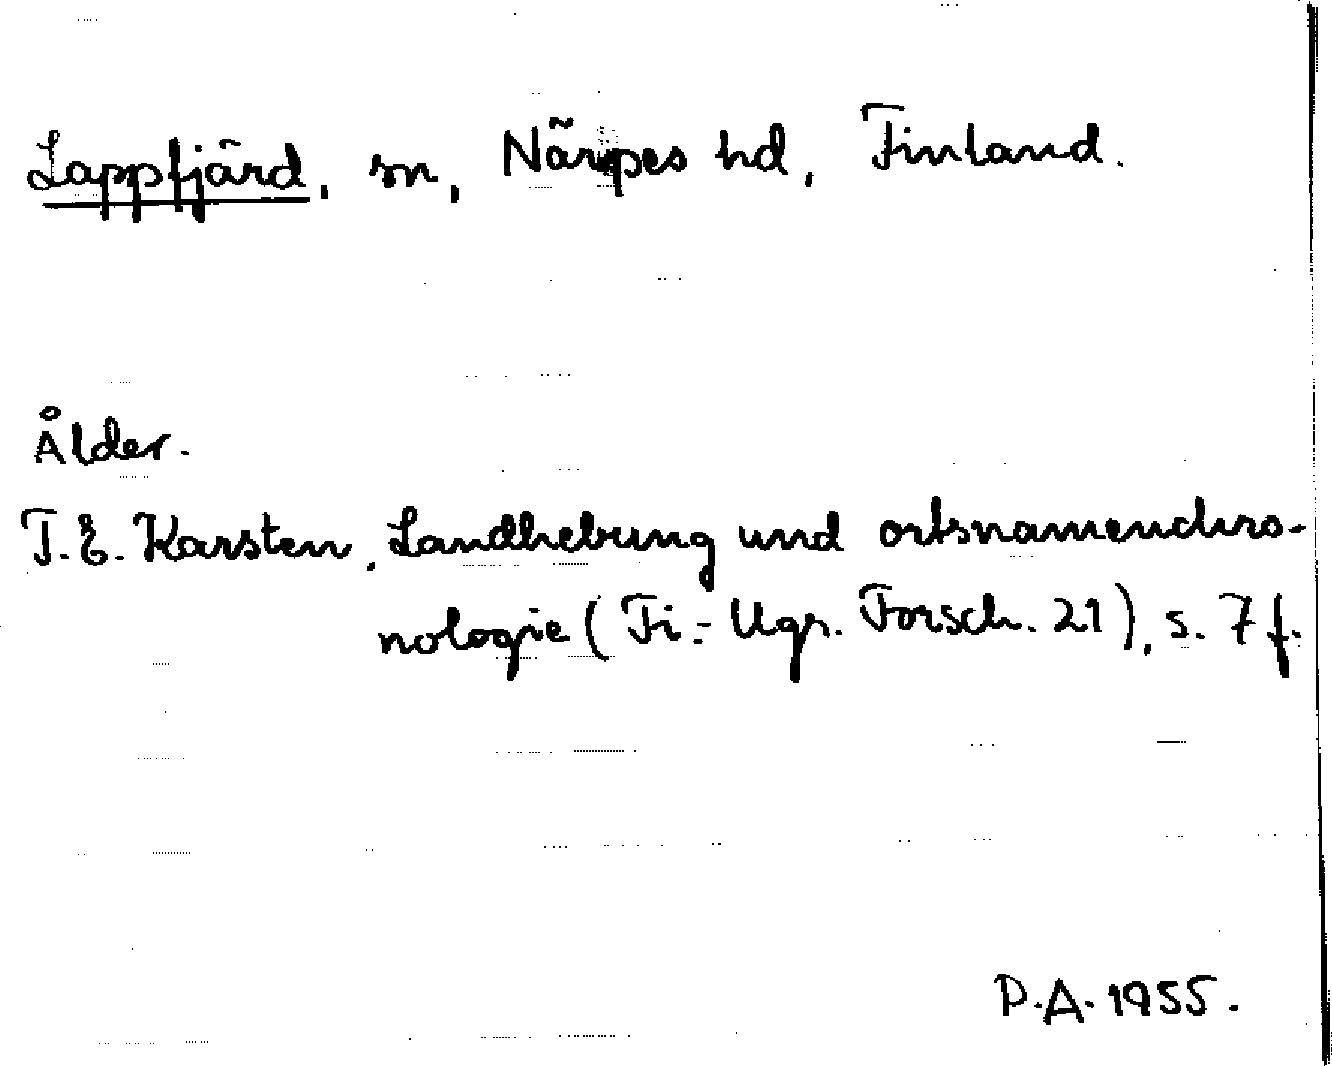 Lappfjärd, sn, Närpes hd, Finland.
Ålder.
T. E. Karsten, Landhebung und ortsnamenchro-
nologie (Fi.-Ugr. Forsch. 21), s. 7 f.
P.A. 1955.